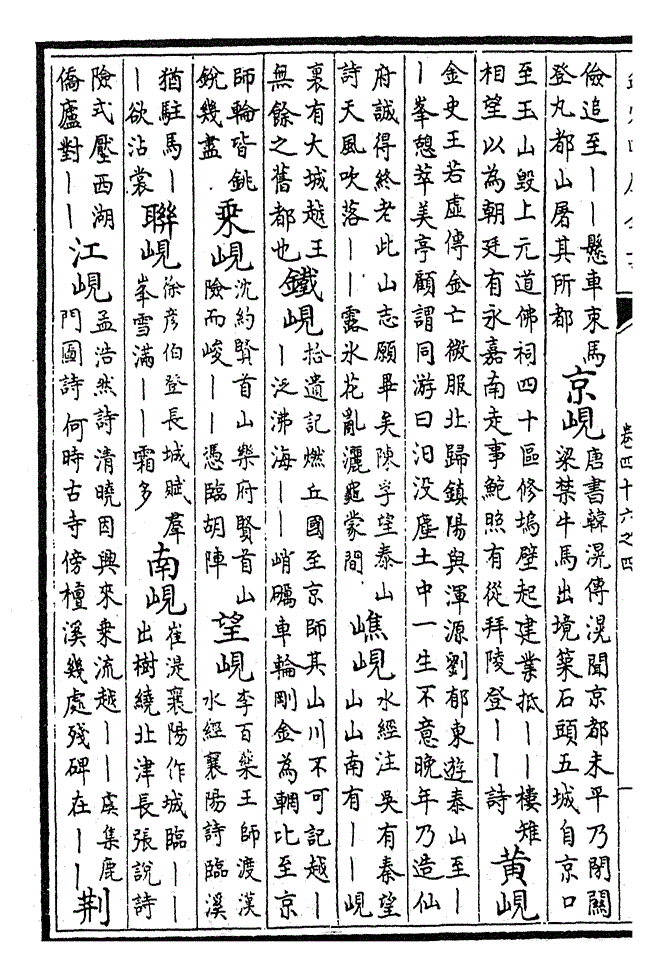 卷四十六之四
儉追至丨丨懸車束馬
登丸都山屠其所都
京峴
唐書韓滉傳滉聞京都未平乃閉關
梁禁牛馬出境築石頭五城自京口
至玉山毀上元道佛祠四十區修塢壁起建業抵丨丨樓雉
相望以為朝廷有永嘉南走事鮑照有從拜陵登丨丨詩
黃峴
金史王若虛傳金亡微服北歸鎮陽與渾源劉郁東遊泰山至丨
丨峯憩萃美亭顧謂同游曰汨没塵土中一生不意晚年乃造仙
府誠得終老此山志願畢矣陳孚望泰山
詩天風吹落丨丨露氷花亂灑龜蒙間
嶕峴
水經注吳有秦望
山山南有丨丨峴
裏有大城越王
無餘之舊都也
鐵峴
拾遺記燃丘國至京師其山川不可記越丨
丨泛沸海丨丨峭礪車輪剛金為輞比至京
師輪皆銚
銳幾盡
乘峴
沈約賢首山樂府賢首山
險而峻丨丨憑臨胡陣
望峴
李百藥王師渡漢
水經襄陽詩臨溪
猶駐馬丨
丨欲沾裳
聯峴
徐彦伯登長城賦羣
峯雪滿丨丨霜多
南峴
崔湜襄陽作城臨丨丨
出樹繞北津長張說詩
險式壓西湖
僑廬對丨丨
江峴
孟浩然詩清曉因興來乘流越丨丨虞集鹿
門圖詩何時古寺傍檀溪幾處殘碑在丨丨
荆